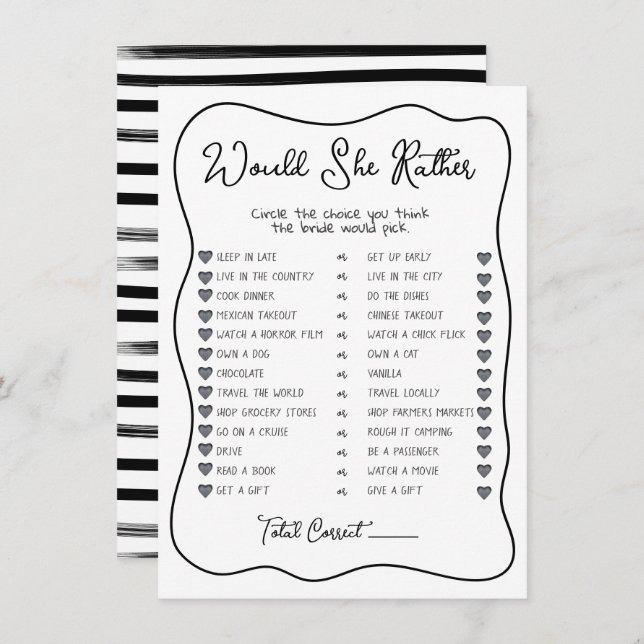 Would She Rather
Circle the choice you think
the bride would pick.
SLEEP IN LATE or GET UP EARLY
LIVE IN THE COUNTRY or LIVE IN THE CITY
COOK DINNER or DO THE DISHES
MEXICAN TAKEOUT or CHINESE TAKEOUT
WATCH A HORROR FILM or WATCH A CHICK FLICK
OWN A DOG or OWN A CAT
CHOCOLATE or VANILLA
TRAVEL THE WORLD or TRAVEL LOCALLY
SHOP GROCERY STORES or SHOP FARMERS MARKETS
GO ON A CRUISE or ROUGH IT CAMPING
DRIVE or BE A PASSENGER
READ A BOOK or WATCH A MOVIE
GET A GIFT or GIVE A GIFT
Total Correct ______